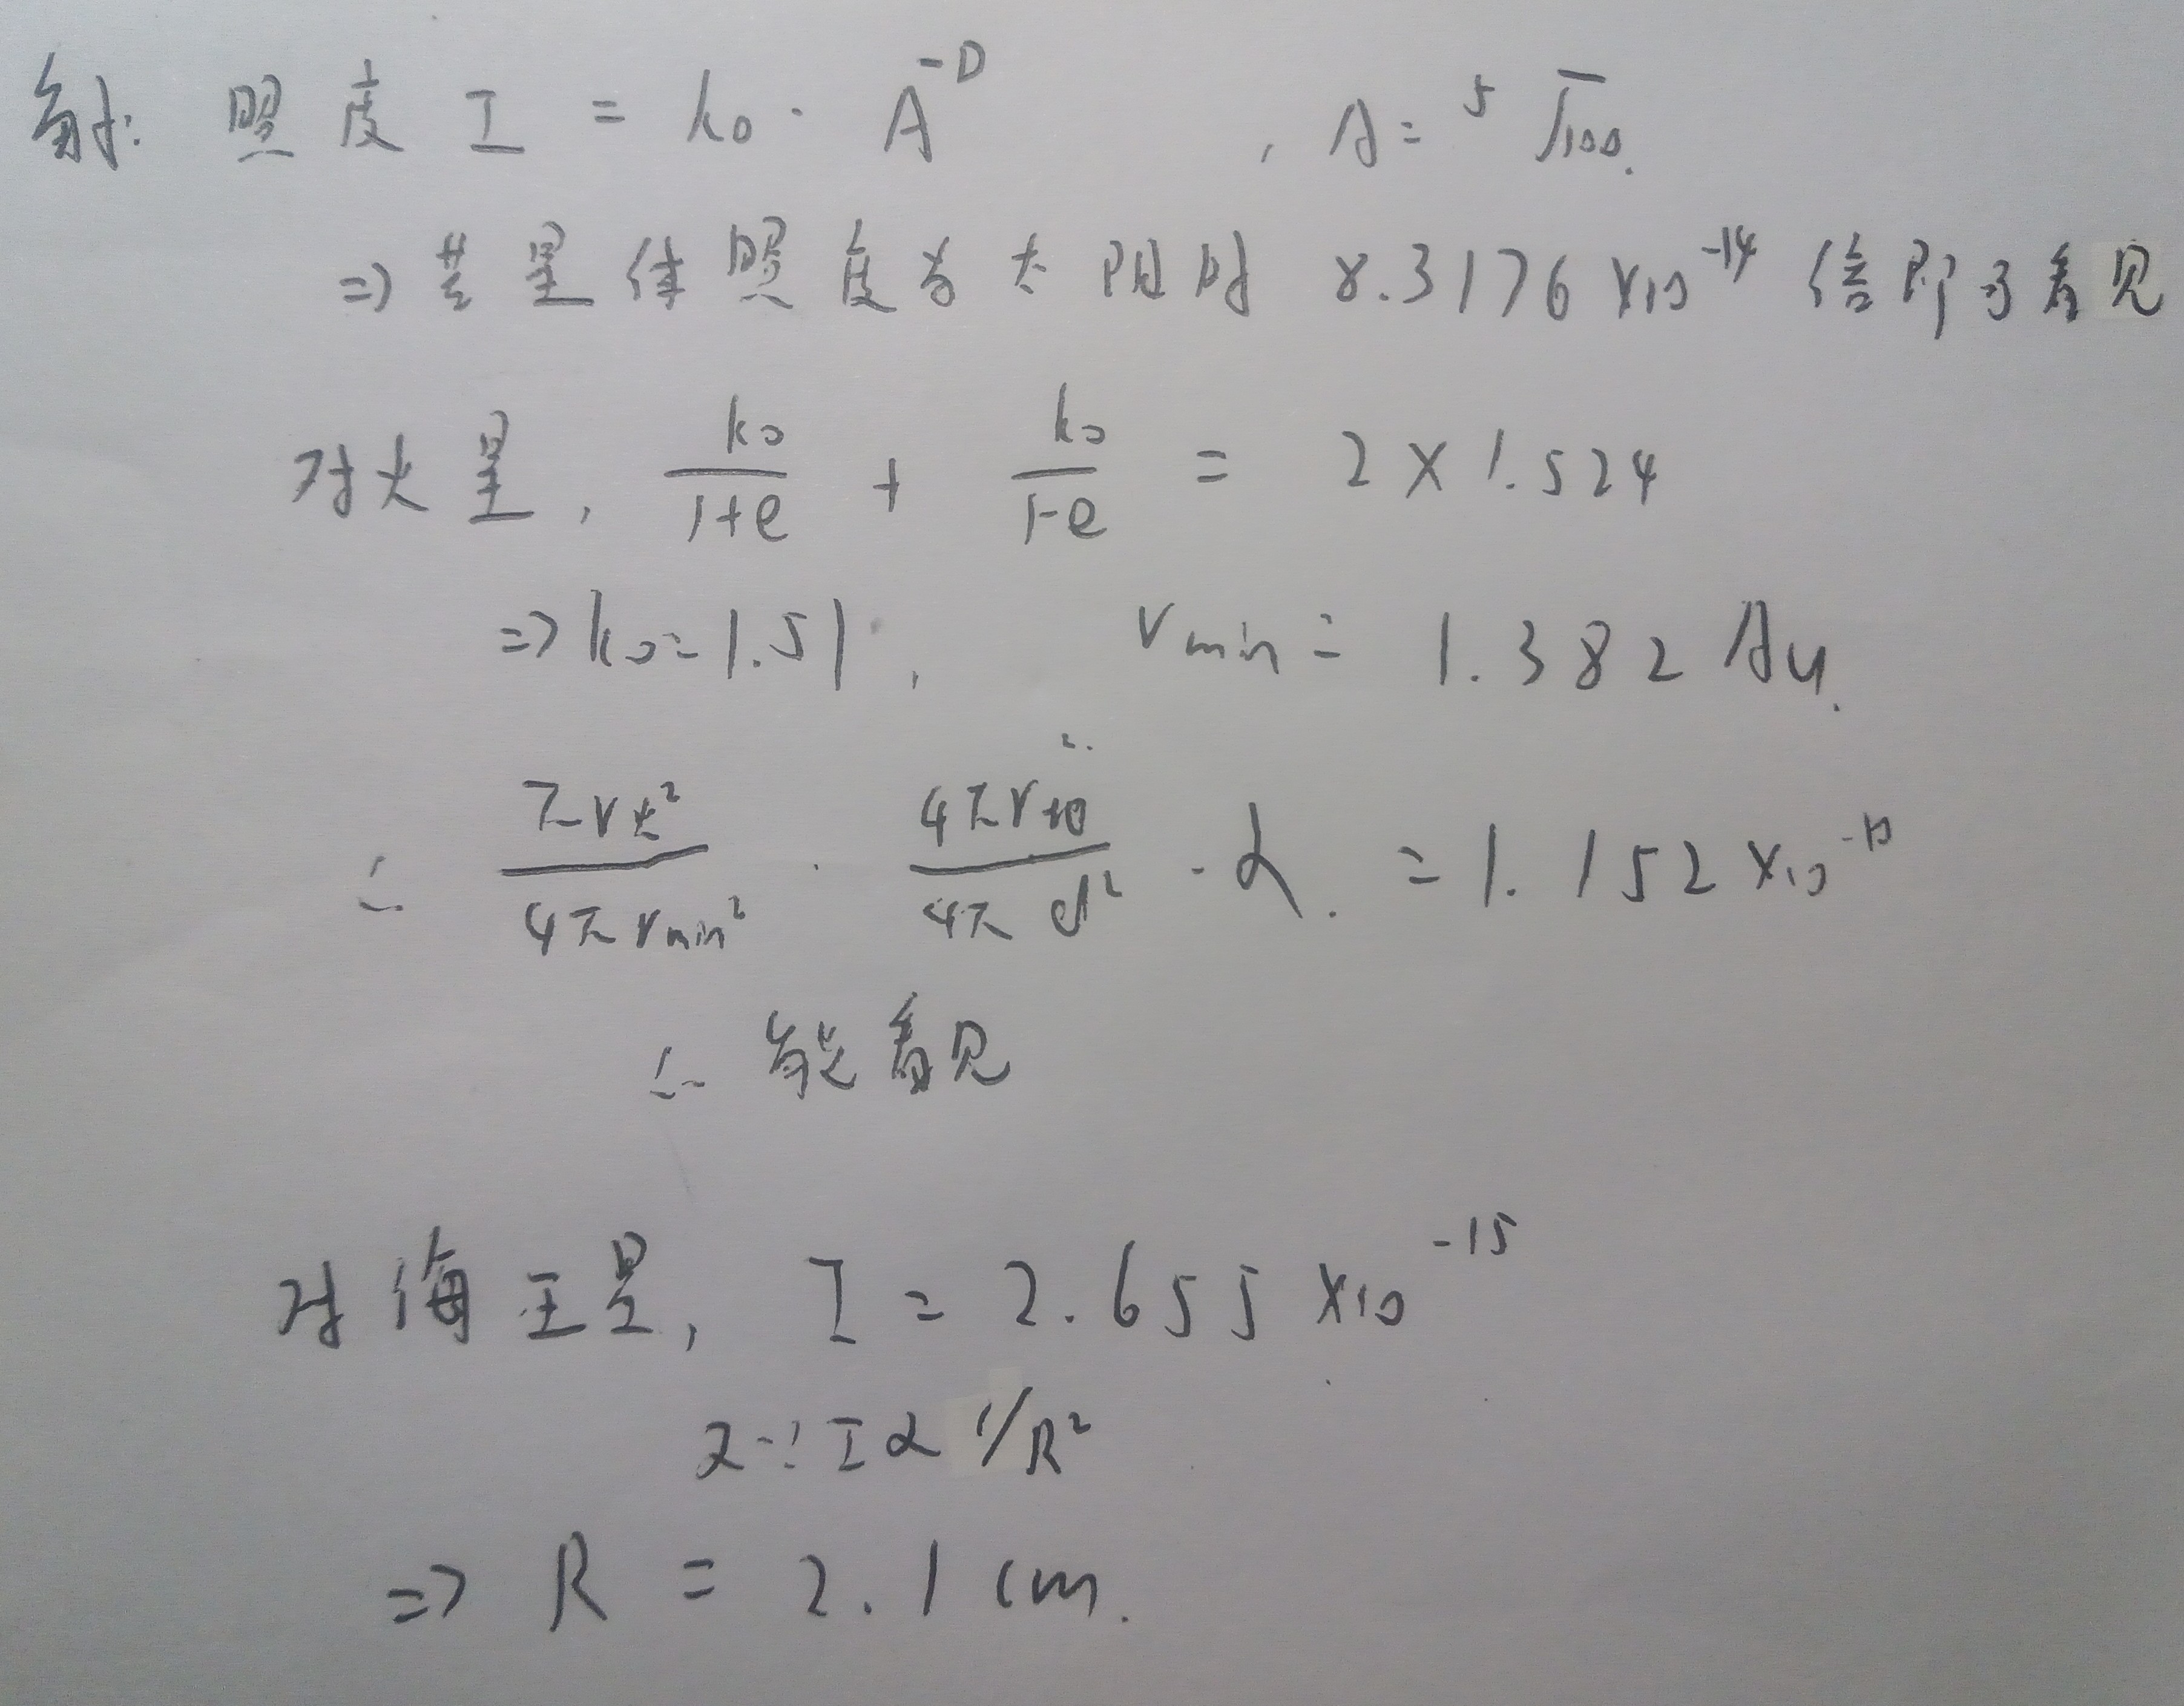 解: 照度 I = k₀ · A^{-D} , A = ⁵√100.
⇒ 若星体照度为太阳的 8.3176×10⁻¹⁴ 倍即可看见
对火星, k₀/(1+e) + k₀/(1-e) = 2 × 1.524
⇒ k₀ = 1.51, r min = 1.382 Au.
∴ πr火²/(4πr min²) · 4πr²/(4πd²) · α. = 1.152 ×10
∴ 能看见
对海王星, I = 2.655 ×10⁻¹⁵
又∵ I ∝ 1/R²
⇒ R = 2.1 cm.